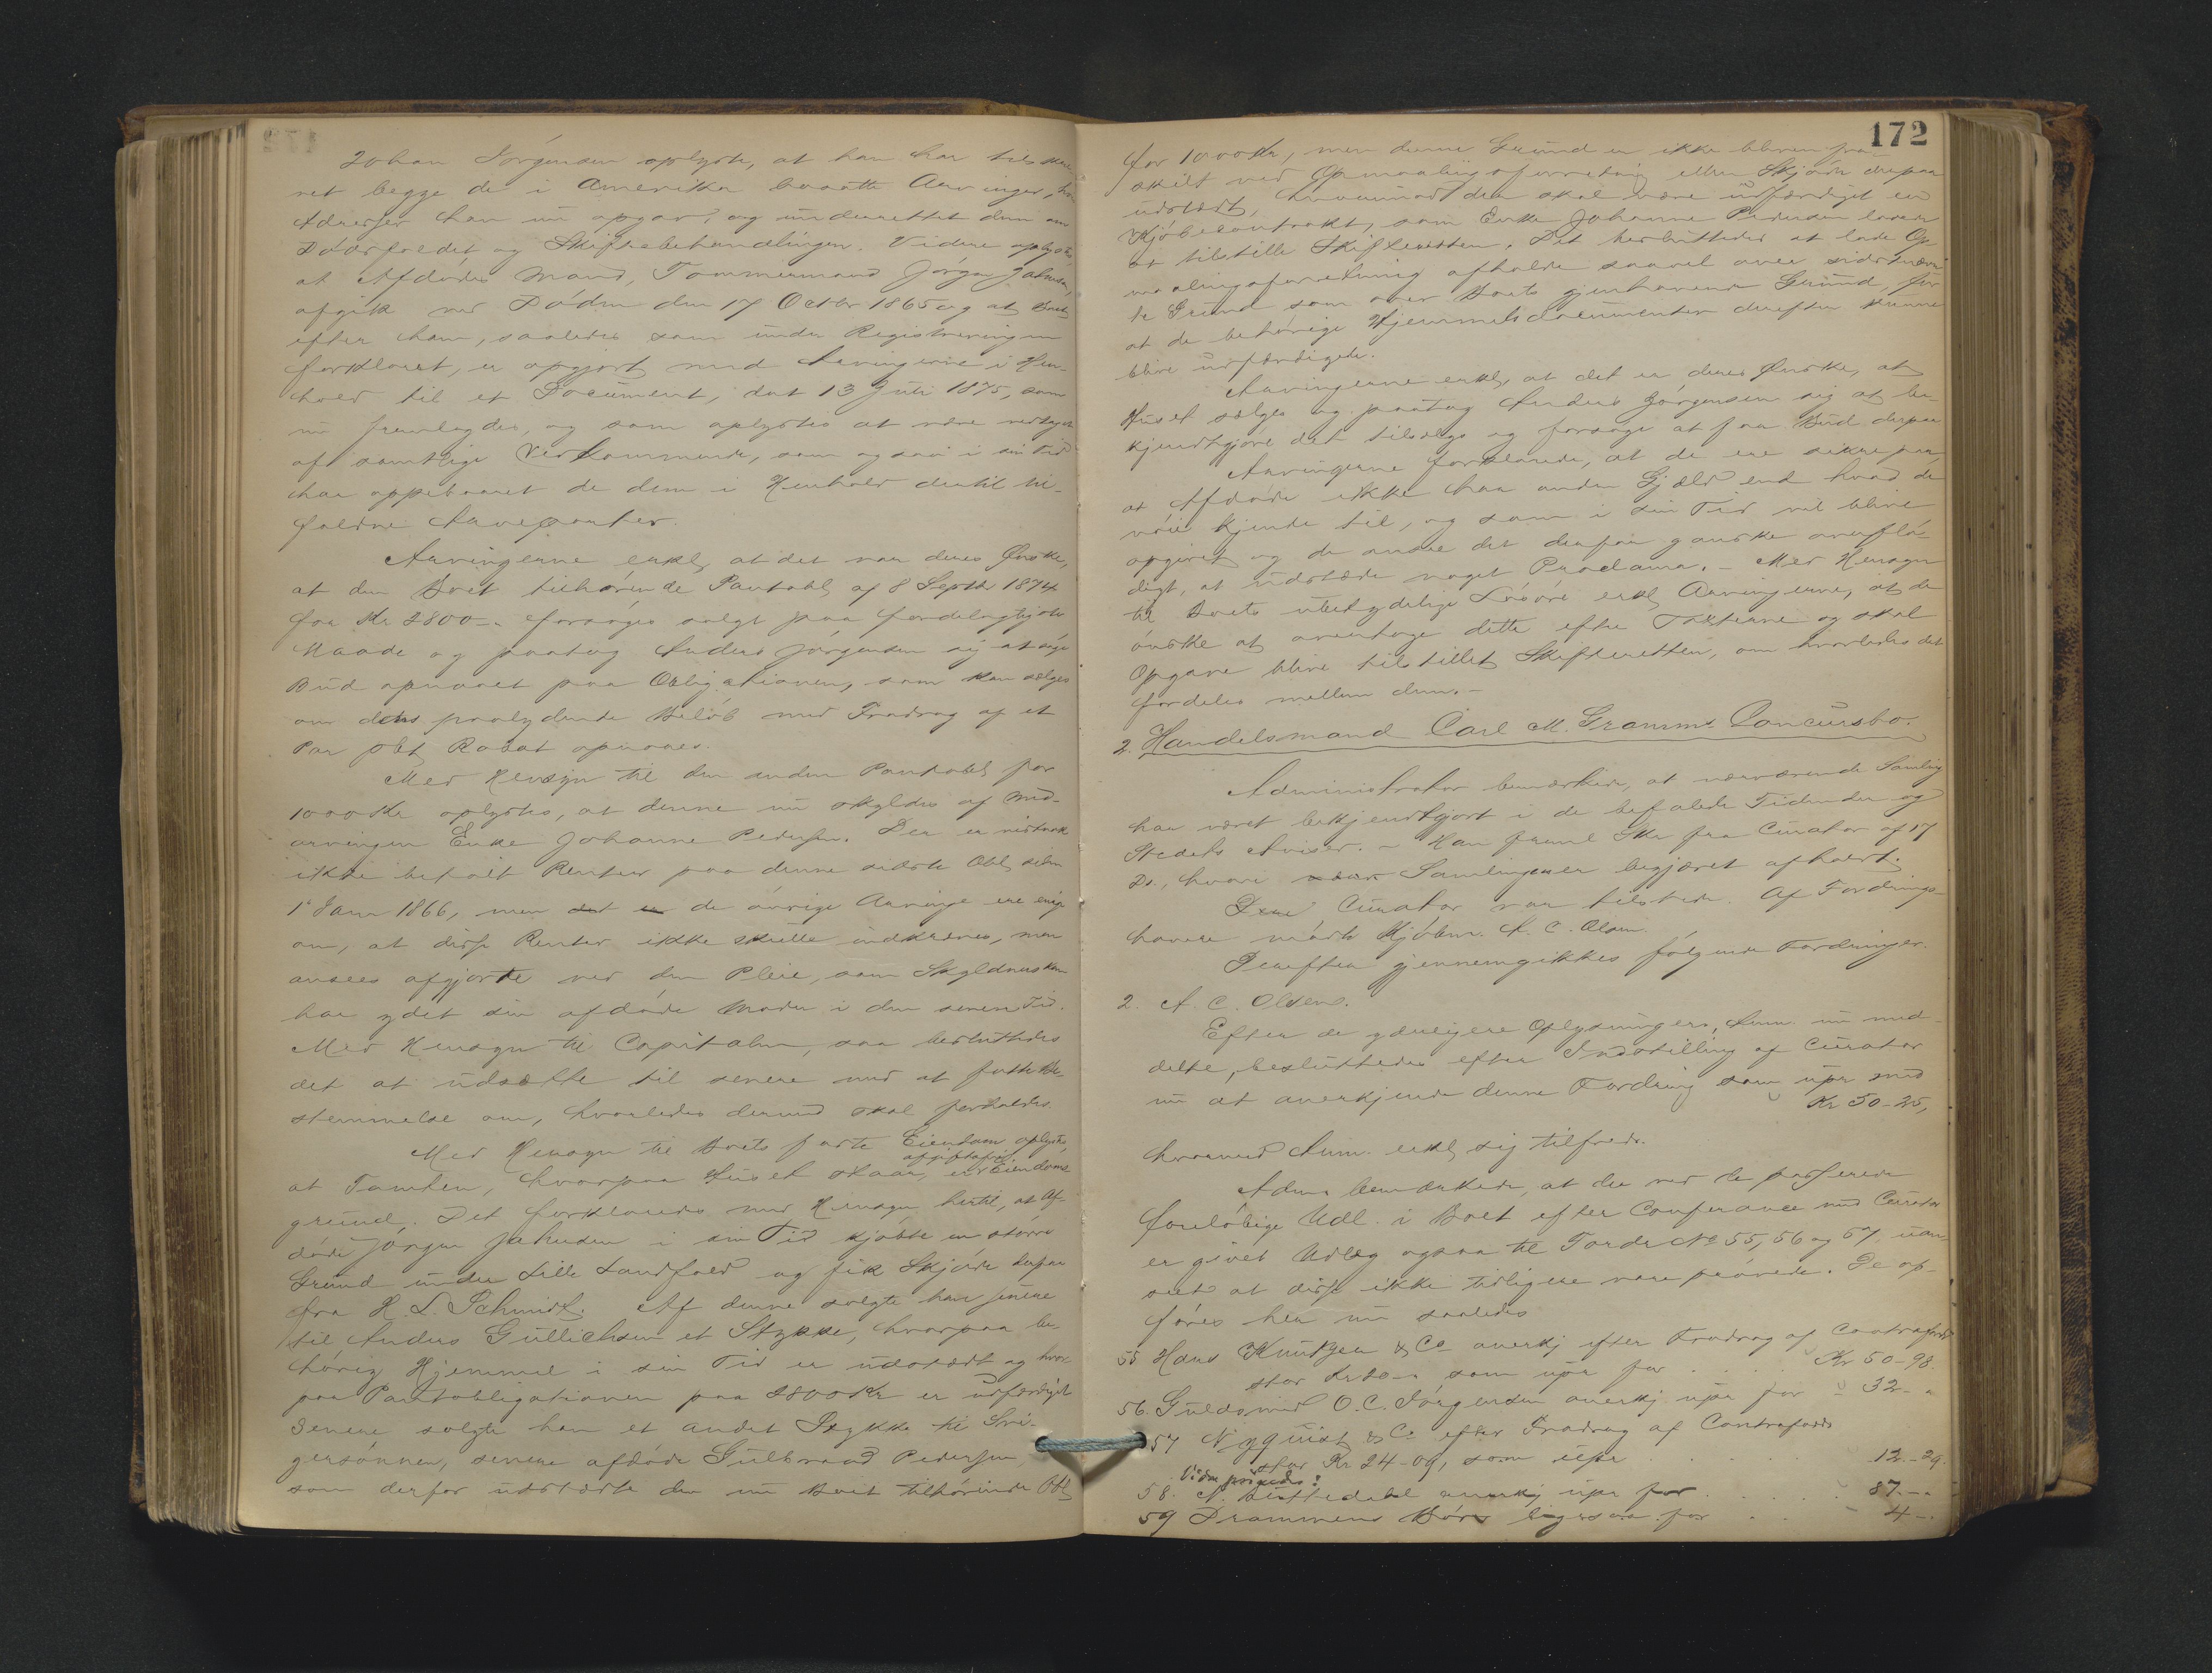 Johan Jörgensen oplyste, at han har tilskre-
vet begge de i Amerika bosatte Arvinger, hvis
Adresser han nu opgav, og underrettet dem om
Dödsfaldet og Skiftebehandlingen. Videre oplystes,
at Afdödes Mand, Tømmermand Jörgen Johnsen,
afgik ved Döden den 17 Octbr 1865 og at Boet
efter ham, saaledes som under Registreringen
forklaret, er opgjort med Arvingerne i Hen-
hold til et Document, dat 13 Juli 1875, som
nu fremlagdes, og som oplystes at være vedtaget
af samtlige Vedkommende, som ogsaa i sin Tid
har oppebaaret de dem i Henhold dertil til-
faldne Arveparter.
Arvingerne erkl, at det var deres Ønske,
at den Boet tilhörende Pantobl af 8 Septb 1874
for Kr 2800 -. forsöges solgt paa fordelagtigste
Maade og paatog Anders Jörgensen sig at söge
Bud opnaaet paa Obligationen, som kan sælges
om dens paalydende Belöb med Fradrag af et
Par pCt Rabat opnaaes.
Med Hensyn til den anden Pantobl for
1000 Kr oplystes, at denne nu skyldes af Med-
arvingen Enke Johanne Pedersen. Der er vistnok
ikke betalt Renter paa denne sidste Obl siden
1 Janr 1866, men det er de övrige Arvinge ere enige
om, at disse Renter ikke skulle indkræves, men
ansees afgjorte ved den Pleie, som Skyldnersken
har ydet sin afdöde Moder i den senere Tid.
Med Hensyn til Capitalen, saa besluttedes
det at udsætte til senere med at fatte Be-
stemmelse om, hvorledes dermed skal forholdes.
Med Hensyn til Boets faste Eiendom oplystes,
at Tomten, hvorpaa Huset staar, er afgiftsfri Eiendoms-
grund. Det forklaredes med Hensyn hertil, at Af-
döde Jörgen Johnsen i sin Tid kjöbte en större
Grund under Lille Landfald og fik Skjöde derpaa
fra H. L. Schmidt. Af denne solgte han senere
til Anders Gullichsen et Stykke, hvorpaa be-
hörig Hjemmel i sin Tid er udstædt og hvor-
paa Pantobligationen paa 2800 Kr er udfærdiget
Senere solgte han et andet Stykke til Svi-
gersönnen, senere afdöde Gulbrand Pedersen,
som derfor udstædte den nu Boet tilhörende Obl
172
for 1000 Kr, men denne Grund er ikke bleven fra-
skilt ved Opmaalingsforretning eller Skjöde derpaa
udstædt, hvorimod der skal være udfærdiget en
Kjöbecontract, som Enke Johanne Pedersen lovede
at tilstille Skifteretten. Det besluttedes at lade Op-
maalingsforretning afholde saavel over sidstnævn-
te Grund som over Boets gjenhavende Grund, for
at de behörige Hjemmelsdocumenter derefter kunne
blive udfærdigede.
Arvingerne erkl, at det er deres Ønske, at
Huset sælges og paatog Anders Jörgensen sig at be-
kjendtgjöre det tilsalgs og forsöge at faa Bud derpaa
Arvingerne forklarede, at de ere sikre paa,
at Afdöde ikke har anden Gjæld end hvad de
nöie kjende til, og som i sin Tid vil blive
opgivet og de ansee det derfor ganske overflö-
digt, at udstæde noget Proclama. - Med Hensyn
til Boets ubetydelige Lösöre erkl Arvingerne, at de
önske at overtage dette efter Taxterne og skal
Opgave blive tilstillet Skifteretten, om hvorledes det
fordeles mellem dem. -
2. Handelsmand Carl M. Gramms Concursbo.
Administrator bemærkede, at nærværende Samling
har været bekjendtgjort i de befalede Tidender og
Stedets Aviser. - Han freml Skr fra Curator af 17
Ds., hvori Samlingen er begjæret afholdt.
Curator var tilstede. Af Fordrings-
havere mödte Kjöbm. A. C. Olsen.
Derefter gjennemgikkes fölgende Fordringer.
2. A. C. Olsens.
Efter de yderligere Oplysninger, Anm. nu med-
delte, besluttedes efter Indstilling af Curator
nu at anerkjende denne Fordring som upr med
Kr 50-25,
hvormed Anm. erkl sig tilfreds.
Adm. bemærkede, at der ved de passerede
foreløbige Udl. i Boet efter Conferance med Curator
er givet Udlæg ogsaa til Fordr No 55, 56 og 57, uan-
seet at disse ikke tidligere vare prövede. De op-
föres her nu saaledes
55 Hans Knutzen & Co anerkj efter Fradrag af Contraford
stor som upr for . . . Kr 50-98.
56. Guldsmed O. C. Jörgensen anerkj. upr for " 32-"
57 Nyquist & Co efter Fradrag af Contraford
stor Kr 24-09, som upr . . . . 12.-29.
Videre prövedes:
58. N. Buttedahl anerkj upr for . . . . " 87.-"
59 Drammens Börs ligesaa for . . " 4-.